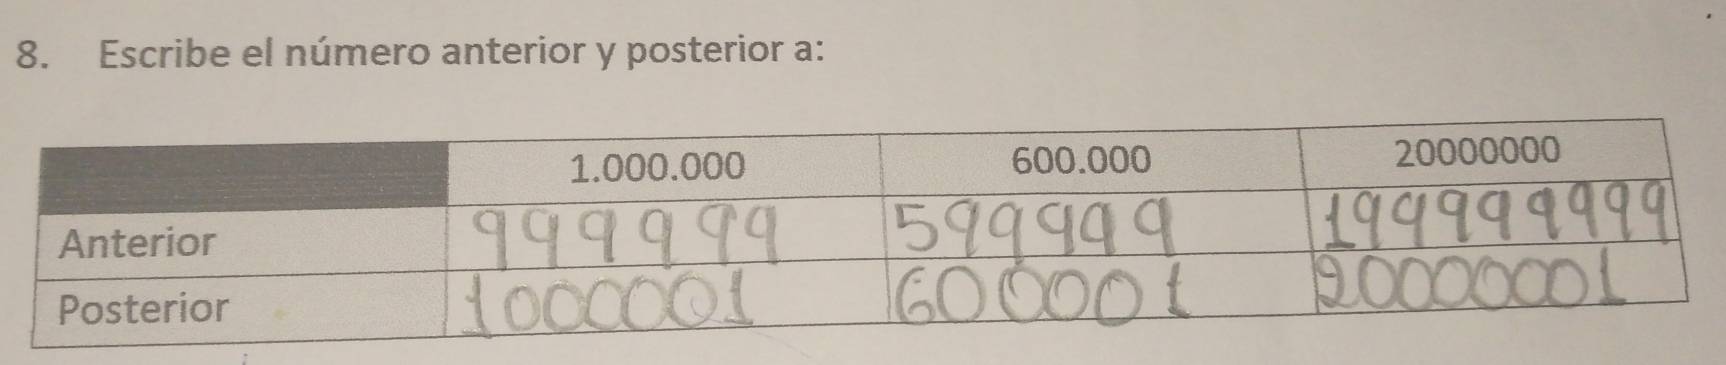 8. Escribe el número anterior y posterior a:
1.000.000 600.000 20000000
Anterior 999999 599999 199999999
Posterior 1000001 600001 20000001